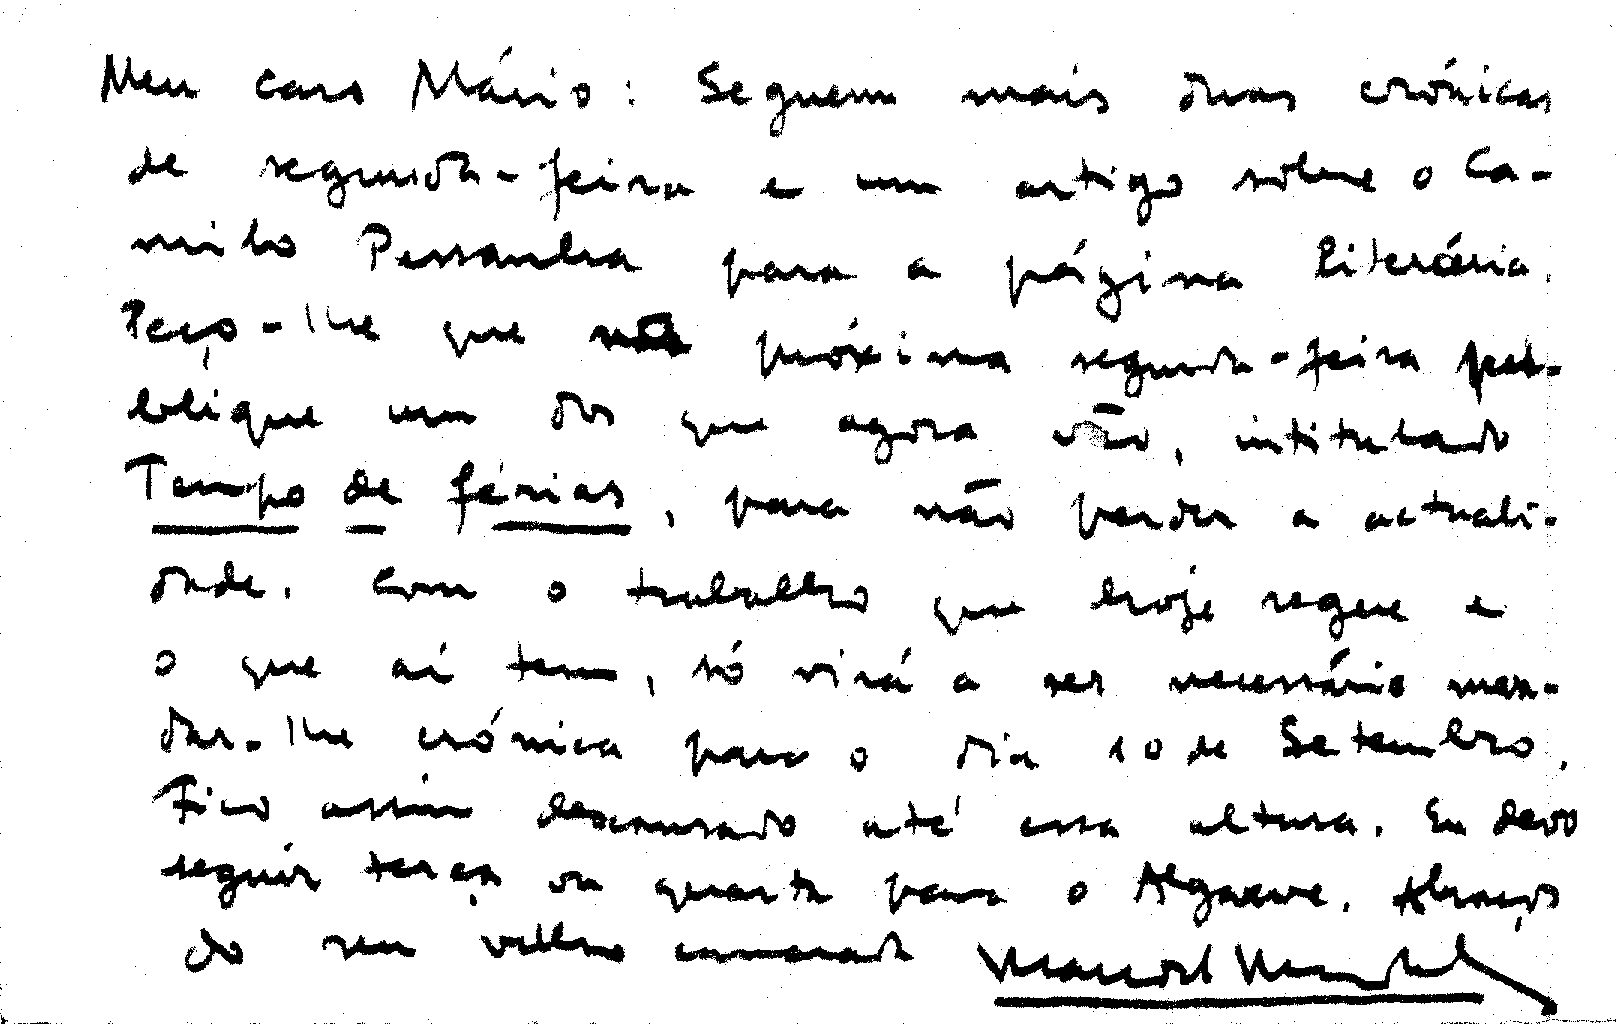 Meu caro Mário: Seguem mais duas crónicas
de segunda-feira e um artigo sobre o Ca-
milo Pessanha para a página literária.
Peço-lhe que na próxima segunda-feira pu-
blique um dos que agora vão, intitulado
Tempo de férias, para não perder a actuali-
dade. Com o trabalho que hoje segue e
o que aí tem, só virá a ser necessário man-
dar-lhe crónica para o dia 10 de Setembro.
Fico assim descansado até essa altura. Eu devo
seguir terça ou quarta para o Algarve. Abraço
do seu velho camarada Manuel